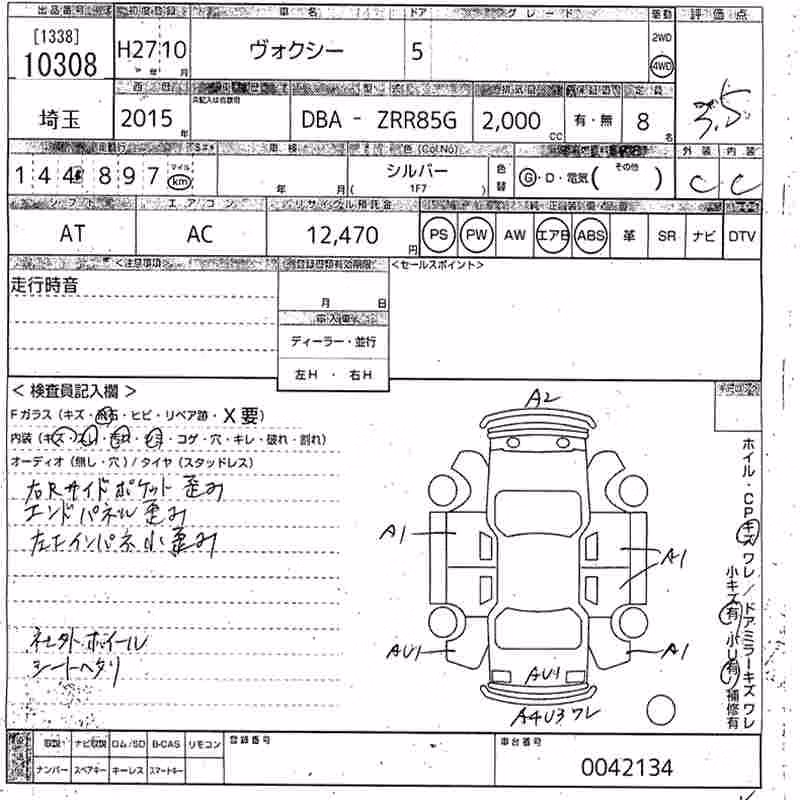 出品番号 初度登録 車名 ドア グレード 駆動 評価点
[1338]
10308 H27 10 年 月 ヴォクシー 5 2WD 4WD 3.5
埼玉 2015 年 未記入は自家用 型式 DBA - ZRR85G 2,000 CC 有・無 定員 8 名
車検 色(Col No) 外装 内装
144,897 マイル km 年 月 シルバー ( 1F7 ) 色替 G・D・電気( その他 ) C C
シフト エアコン リサイクル預託金
AT AC 12,470 円 PS PW AW エアB ABS 革 SR ナビ DTV
<注意事項> 登録書類有効期限 <セールスポイント>
走行時音
月 日
輸入車
ディーラー・並行
左H ・ 右H
< 検査員記入欄 >
Fガラス (キズ・飛石・ヒビ・リペア跡・X要)
内装 (キズ・スレ・汚れ・シミ・コゲ・穴・キレ・破れ・割れ)
オーディオ (無し・穴) / タイヤ (スタッドレス)
右Rサイドポケット歪み
エンドパネル歪み
社外ホイール
シートヘタリ
A2
A1
A1
AU1
A1
AU1
A4U3ワレ
ホイル・CPキズ ワレ / ドアミラーキズ ワレ
小キズ有 小U有 補修有
取説 ナビ取説 ロム/SD B-CAS リモコン 登録番号 車台番号
ナンバー スペアキー キーレス スマートキー 0042134